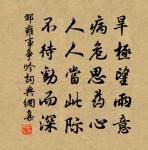 旱極望雨意
病危思藥心
人人當此際
不待勸而深
邵雍事急吟詞典網集